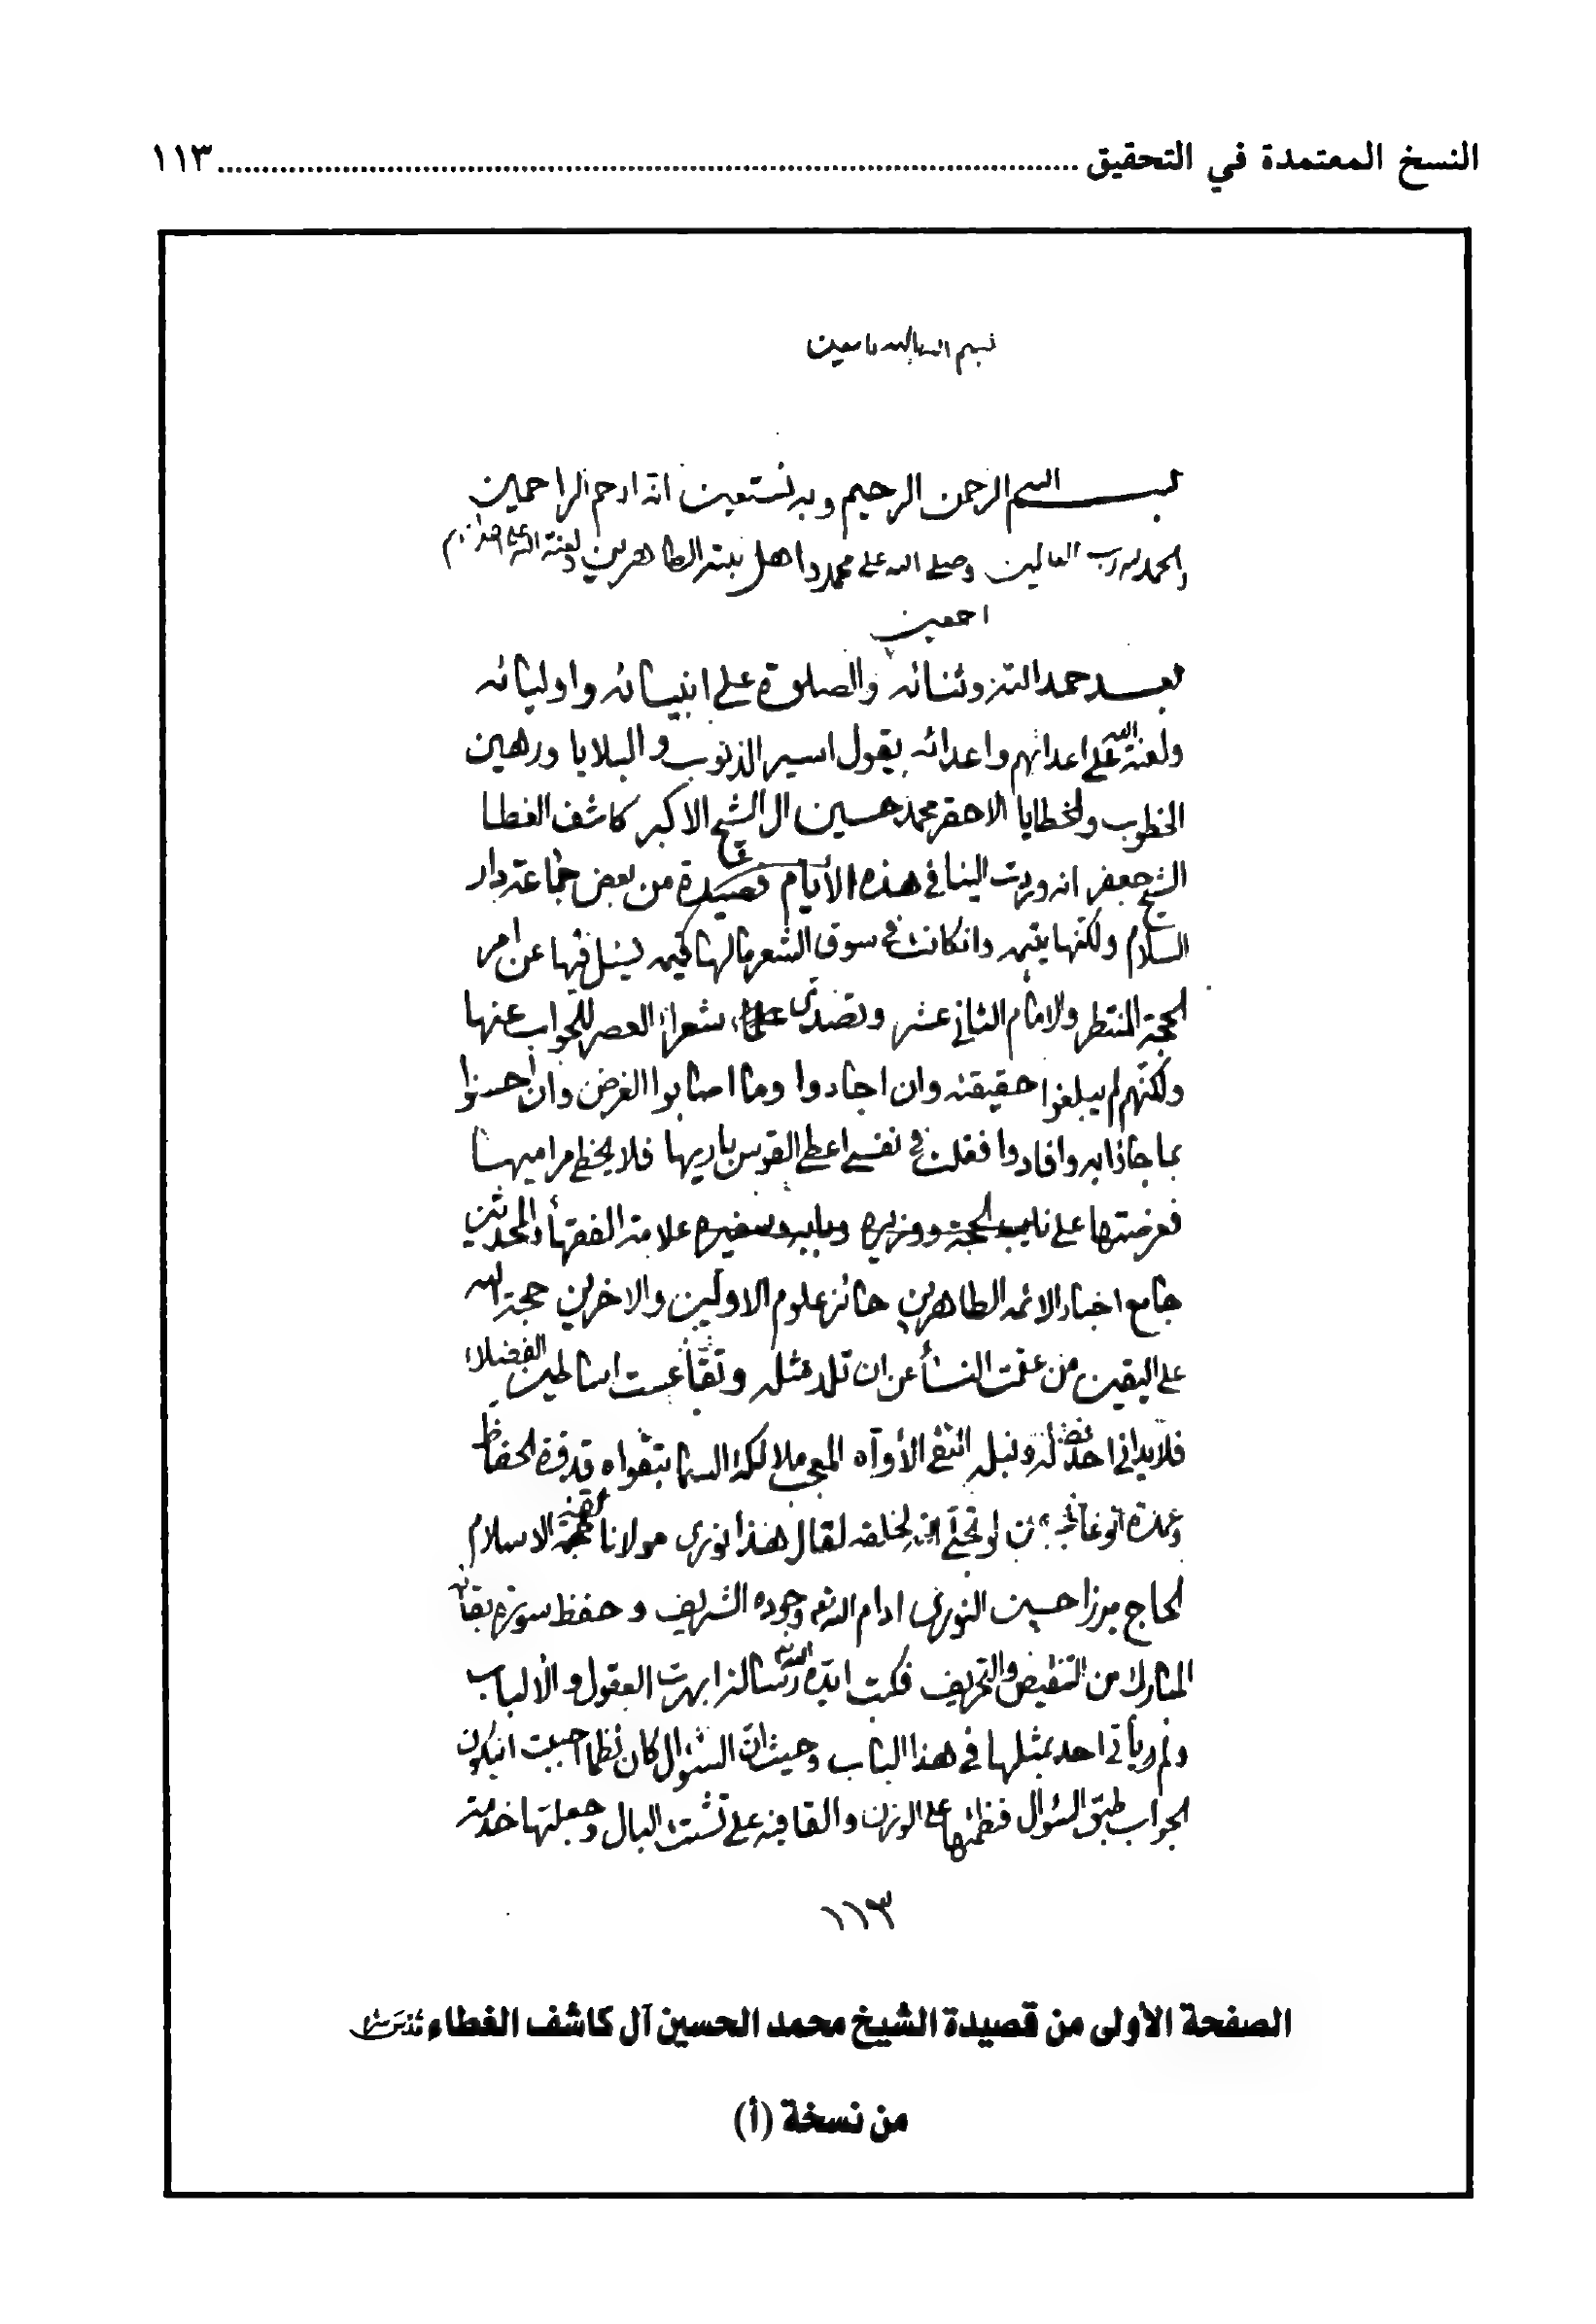 النسخ المعتمدة في التحقيق ........ ١١٣
بسم الله الرحمن الرحيم وبه نستعين انه ارحم الراحمين
والحمد لله رب العالمين وصلى الله على محمد واهل بيته الطاهرين ولعنة الله على
اجمعين
بعد حمد الله وثنائه والصلوة على انبيائه واوليائه
ولعنة الله على اعدائهم واعدائه يقول اسير الذنوب والبلايا ورهين
الخطوب والخطايا الاحقر محمد حسين ال الشيخ الاكبر كاشف الغطا
الشيخ جعفر انه وردت الينا في هذه الأيام قصيدة من بعض جماعة دار
السلام ولكنها يتيمه وانكانت في سوق الشعر مالها قيمه يسئل فيها عن امر
الحجة المنتظر والامام الثاني عشر وتصدى شعراء العصر للجواب عنها
ولكنهم لم يبلغوا حقيقته وان اجادوا وما اصابوا الغرض وان احسنوا
بما جاؤا به وافادوا فقلت في نفسي اعطي القوس باريها فلا يخطي مراميها
فعرضتها على نايب الحجة ووزيره وبابه وسفيره علامة الفقهاء والمحدثين
جامع اخبار الائمه الطاهرين حائز علوم الاولين والاخرين حجة الله
على اليقين من عقمت النساء عن ان تلد مثله وتقاعست اساطين الفضلاء
فلا يداني احد فضله ونبله التقي الأوّاه المعجب ملائكة السماء بتقواه قدوة الحفاظ
من لو تجلى الله لخلقه لقال هذا نوري مولانا ثقة الاسلام
الحاج ميرزا حسين النوري ادام الله وجوده الشريف وحفظ سورة بقائه
المبارك من التنقيص والتحريف فكتب ايده الله رسالة ابهرت العقول والألباب
ولم يأتي احد بمثلها في هذا الباب وحيث ان السئوال كان نظما احببت انيكون
الجواب طبق السئوال فنظمتها على الوزن والقافيه على تشتت البال وجعلتها خدمة
١١٣
الصفحة الأولى من قصيدة الشيخ محمد الحسين آل كاشف الغطاء
من نسخة (أ)